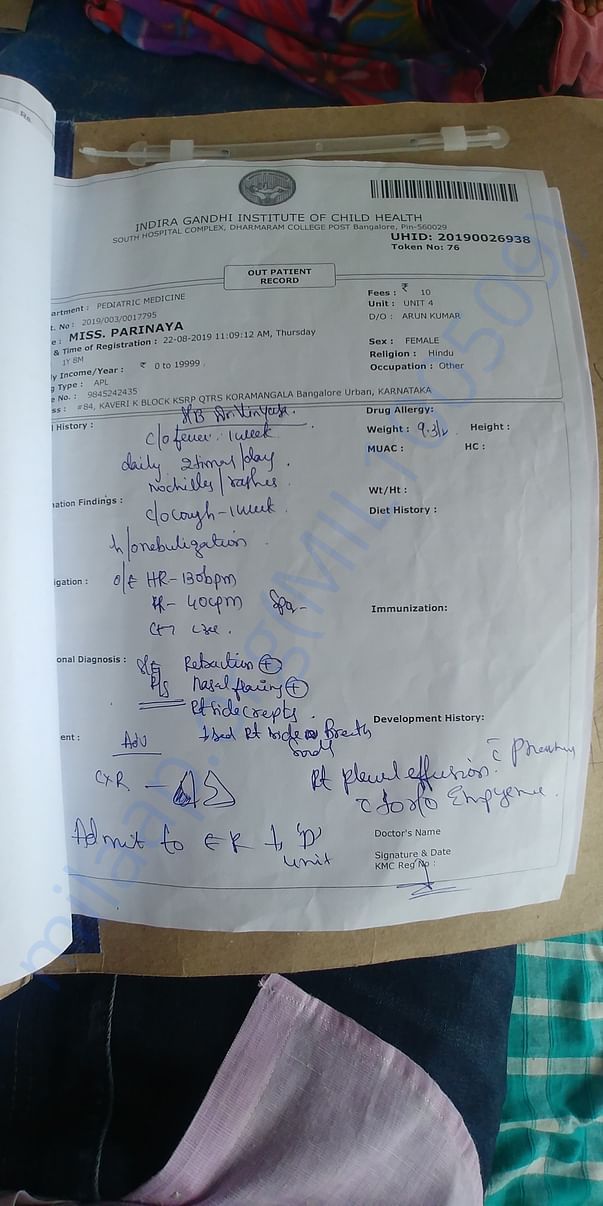 Rs.
INDIRA GANDHI INSTITUTE OF CHILD HEALTH
SOUTH HOSPITAL COMPLEX, DHARMARAM COLLEGE POST Bangalore, Pin-560029
UHID: 20190026938
Token No: 76
OUT PATIENT
RECORD
artment : PEDIATRIC MEDICINE
. No : 2019/003/0017795
e : MISS. PARINAYA
& Time of Registration : 22-08-2019 11:09:12 AM, Thursday
1Y 8M
y Income/Year : ₹ 0 to 19999
g Type : APL
e No. : 9845242435
ss : #84, KAVERI K BLOCK KSRP QTRS KORAMANGALA Bangalore Urban, KARNATAKA
Fees : ₹ 10
Unit : UNIT 4
D/O : ARUN KUMAR
Sex : FEMALE
Religion : Hindu
Occupation : Other
l History :
S/B Dr.
c/o fever. 1 week
daily 2 times/day.
no chills / rashes
nation Findings :
c/o cough - 1 week.
h/o nebulization.
igation :
o/E HR - 130bpm
RR - 40cpm Spo2 -
ional Diagnosis :
Retraction +
R/S Nasal flaring +
Rt side crepts.
↓sed Rt side Breath
Sounds
ent :
Adv
CXR -
Admit to ER ↓ 'D'
unit
Drug Allergy:
Weight : 9.3 Height :
MUAC : HC :
Wt/Ht :
Diet History :
Immunization:
Development History:
Rt pleural effusion.
Empyema.
Doctor's Name
Signature & Date
KMC Reg No :
milaap.org(MIL1005509)